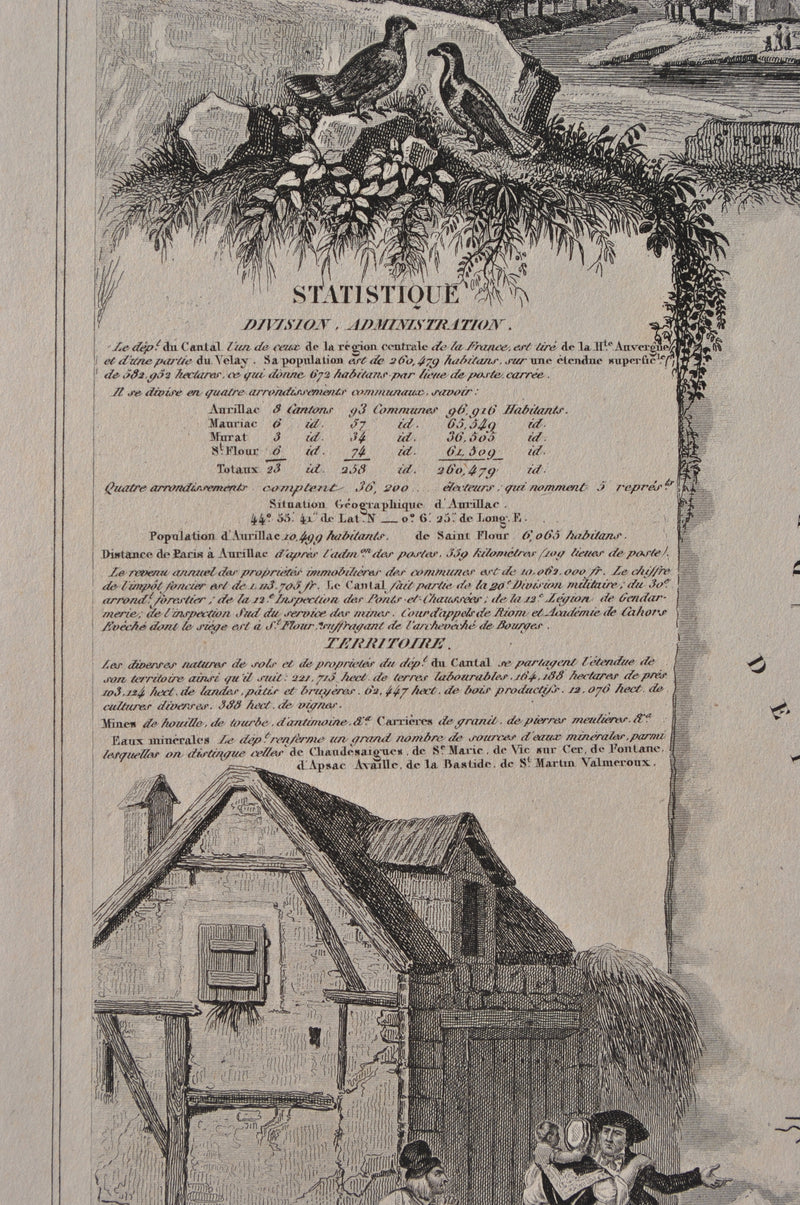 St FLOUR
STATISTIQUE
DIVISION, ADMINISTRATION.
Le dépt du Cantal l'un de ceux de la région centrale de la France, est tiré de la Hte Auvergne
et d'une partie du Velay. Sa population est de 260,479 habitans, sur une étendue superficlle
de 582,952 hectares, ce qui donne 672 habitans par lieue de poste carrée.
Il se divise en quatre arrondissements communaux, savoir:
Aurillac 8 Cantons 93 Communes 96,916 Habitants.
Mauriac 6 id. 57 id. 65,549 id.
Murat 3 id. 34 id. 36,505 id.
St Flour 6 id. 74 id. 61,509 id.
Totaux 23 id. 258 id. 260,479 id.
Quatre arrondissements comptent 36,200 .... électeurs, qui nomment 5 représts
Situation Géographique d'Aurillac.
44° 55' 41" de Lat. N — 0° 6' 25" de Long. E.
Population d'Aurillac 10,499 habitants. de Saint Flour 6,065 habitans.
Distance de Paris à Aurillac d'après l'admon des postes, 559 kilomètres (109 lieues de poste).
Le revenu annuel des propriétés immobilières des communes est de 10,062,000 fr. Le chiffre
de l'impôt foncier est de 1,113,705 fr. Le Cantal fait partie de la 20e Division militaire; du 30e
arrondt forestier; de la 12e Inspection des Ponts et Chaussées; de la 12e Légion de Gendar-
merie; de l'inspection Sud du service des mines. Cour d'appels de Riom et Académie de Cahors
Evêché dont le siège est à St Flour, suffragant de l'archevêché de Bourges.
TERRITOIRE.
Les diverses natures de sols et de propriétés du dépt du Cantal se partagent l'étendue de
son territoire ainsi qu'il suit: 221,713 hect. de terres labourables, 164,188 hectares de prés
103,124 hect. de landes, pâtis et bruyères. 62,447 hect. de bois productifs. 12,076 hect. de
cultures diverses. 388 hect. de vignes.
Mines de houille, de tourbe, d'antimoine, &a Carrières de granit, de pierres meulières, &a
Eaux minérales Le dépt renferme un grand nombre de sources d'eaux minérales, parmi
lesquelles on distingue celles de Chaudesaigues, de Ste Marie, de Vic sur Cer, de Fontane,
d'Apsac Availle, de la Bastide, de St Martin Valmeroux.